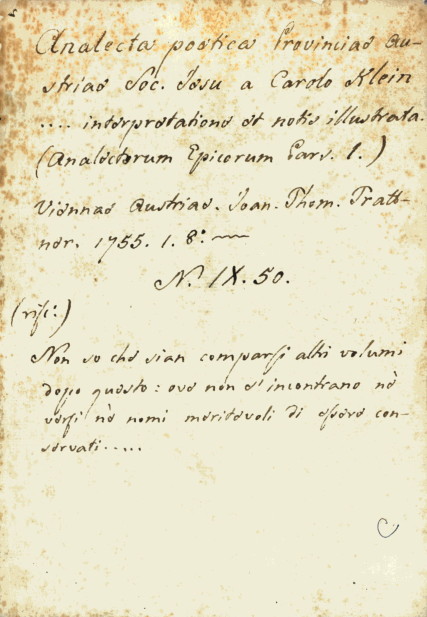 Analecta poetica Provinciae Au-
striae Soc. Jesu a Carolo Klein
.... interpretatione et notis illustrata.
(Analectorum Epicorum Pars. I.)
Viennae Austriae. Joan. Thom. Tratt-
ner. 1755. 1. 8.°
N.° IX. 50.
(risc:)
Non so che sian comparsi altri volumi
dopo questo: ove non s'incontrano nè
versi nè nomi meritevoli di essere con-
servati.....